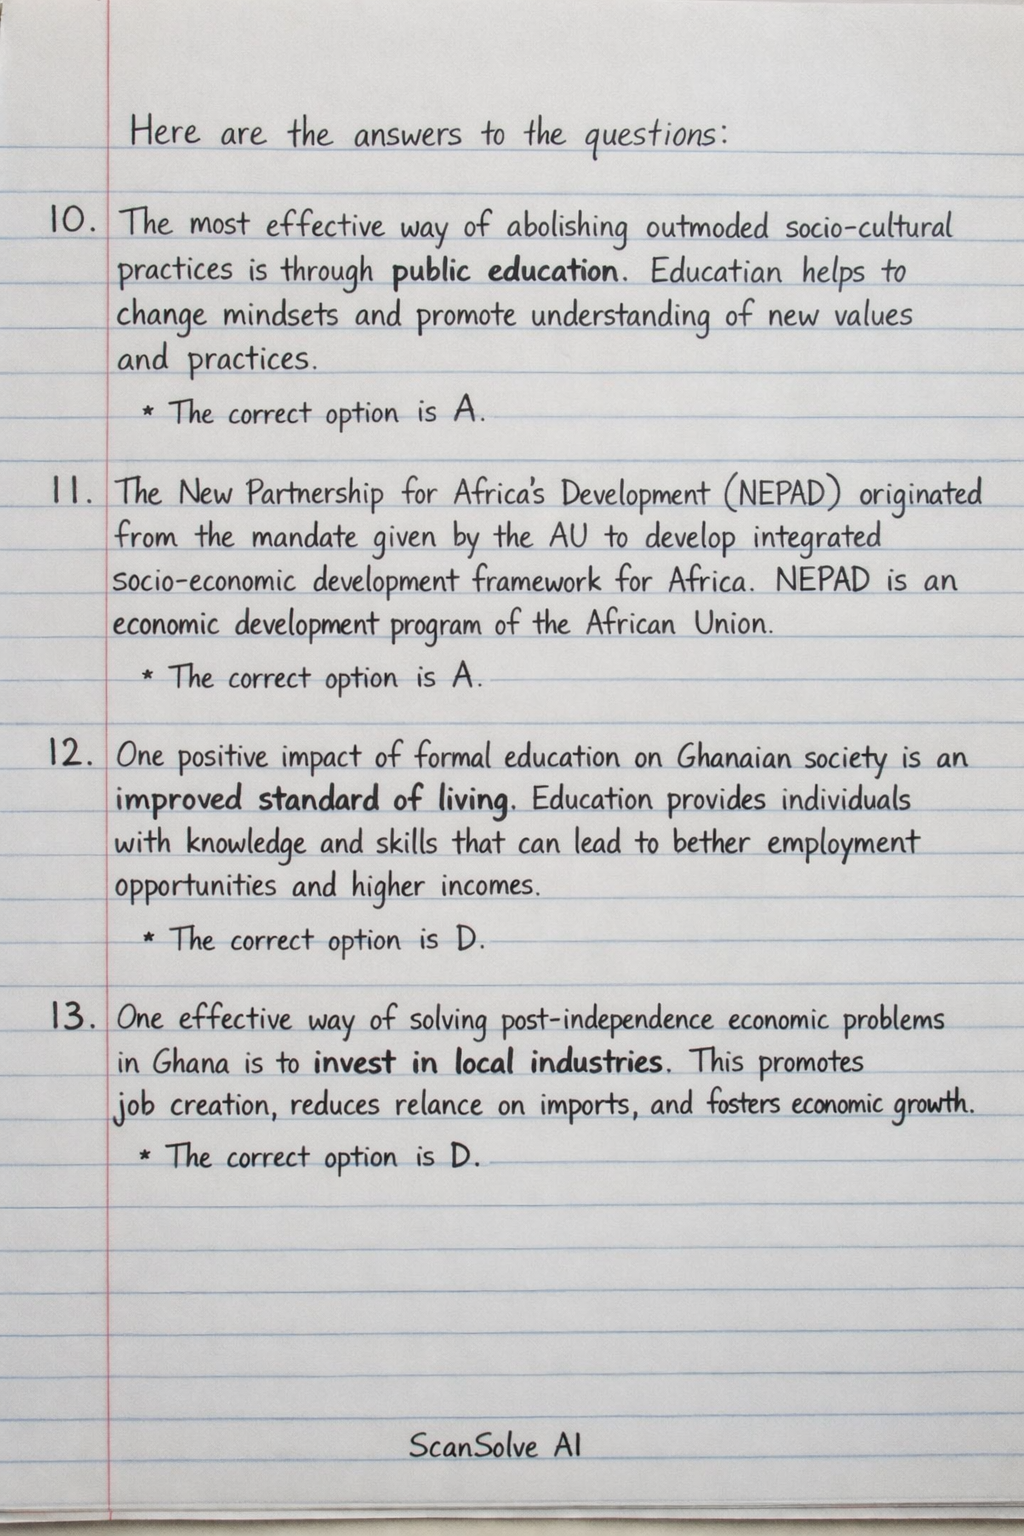 Here are the answers to the questions:
10. The most effective way of abolishing outmoded socio-cultural
practices is through public education. Educatian helps to
change mindsets and promote understanding of new values
and practices.
* The correct option is A.
11. The New Partnership for Africa's Development (NEPAD) originated
from the mandate given by the AU to develop integrated
socio-economic development framework for Africa. NEPAD is an
economic development program of the African Union.
* The correct option is A.
12. One positive impact of formal education on Ghanaian society is an
improved standard of living. Education provides individuals
with knowledge and skills that can lead to bether employment
opportunities and higher incomes.
* The correct option is D.
13. One effective way of solving post-independence economic problems
in Ghana is to invest in local industries. This promotes
job creation, reduces relance on imports, and fosters economic growth.
* The correct option is D.
ScanSolve AI